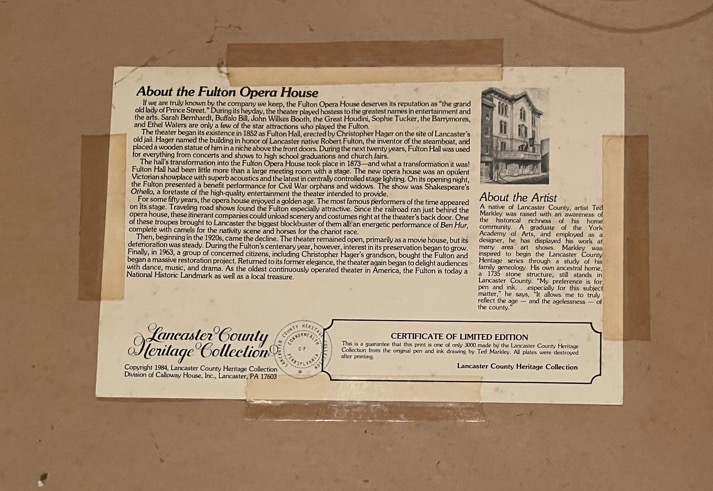 About the Fulton Opera House
If we are truly known by the company we keep, the Fulton Opera House deserves its reputation as "the grand
old lady of Prince Street." During its heyday, the theater played hostess to the greatest names in entertainment and
the arts. Sarah Bernhardt, Buffalo Bill, John Wilkes Booth, the Great Houdini, Sophie Tucker, the Barrymores,
and Ethel Waters are only a few of the star attractions who played the Fulton.
The theater began its existence in 1852 as Fulton Hall, erected by Christopher Hager on the site of Lancaster's
old jail. Hager named the building in honor of Lancaster native Robert Fulton, the inventor of the steamboat, and
placed a wooden statue of him in a niche above the front doors. During the next twenty years, Fulton Hall was used
for everything from concerts and shows to high school graduations and church fairs.
The hall's transformation into the Fulton Opera House took place in 1873—and what a transformation it was!
Fulton Hall had been little more than a large meeting room with a stage. The new opera house was an opulent
Victorian showplace with superb acoustics and the latest in centrally controlled stage lighting. On its opening night,
the Fulton presented a benefit performance for Civil War orphans and widows. The show was Shakespeare's
Othello, a foretaste of the high-quality entertainment the theater intended to provide.
For some fifty years, the opera house enjoyed a golden age. The most famous performers of the time appeared
on its stage. Traveling road shows found the Fulton especially attractive. Since the railroad ran just behind the
opera house, these itinerant companies could unload scenery and costumes right at the theater's back door. One
of these troupes brought to Lancaster the biggest blockbuster of them all: an energetic performance of Ben Hur,
complete with camels for the nativity scene and horses for the chariot race.
Then, beginning in the 1920s, came the decline. The theater remained open, primarily as a movie house, but its
deterioration was steady. During the Fulton's centenary year, however, interest in its preservation began to grow.
Finally, in 1963, a group of concerned citizens, including Christopher Hager's grandson, bought the Fulton and
began a massive restoration project. Returned to its former elegance, the theater again began to delight audiences
with dance, music, and drama. As the oldest continuously operated theater in America, the Fulton is today a
National Historic Landmark as well as a local treasure.
About the Artist
A native of Lancaster County, artist Ted
Markley was raised with an awareness of
the historical richness of his home
community. A graduate of the York
Academy of Arts, and employed as a
designer, he has displayed his work at
many area art shows. Markley was
inspired to begin the Lancaster County
Heritage series through a study of his
family geneology. His own ancestral home,
a 1735 stone structure, still stands in
Lancaster County. "My preference is for
pen and ink. . .especially for this subject
matter," he says, "It allows me to truly
reflect the age — and the agelessness — of
the county."
Lancaster County
Heritage Collection
Copyright 1984, Lancaster County Heritage Collection
Division of Calloway House, Inc., Lancaster, PA 17603
LANCASTER COUNTY HERITAGE COLLECTION
COMMONWEALTH
OF
PENNSYLVANIA
CERTIFICATE OF LIMITED EDITION
This is a guarantee that this print is one of only 3000 made by the Lancaster County Heritage
Collection from the original pen and ink drawing by Ted Markley. All plates were destroyed
after printing.
Lancaster County Heritage Collection